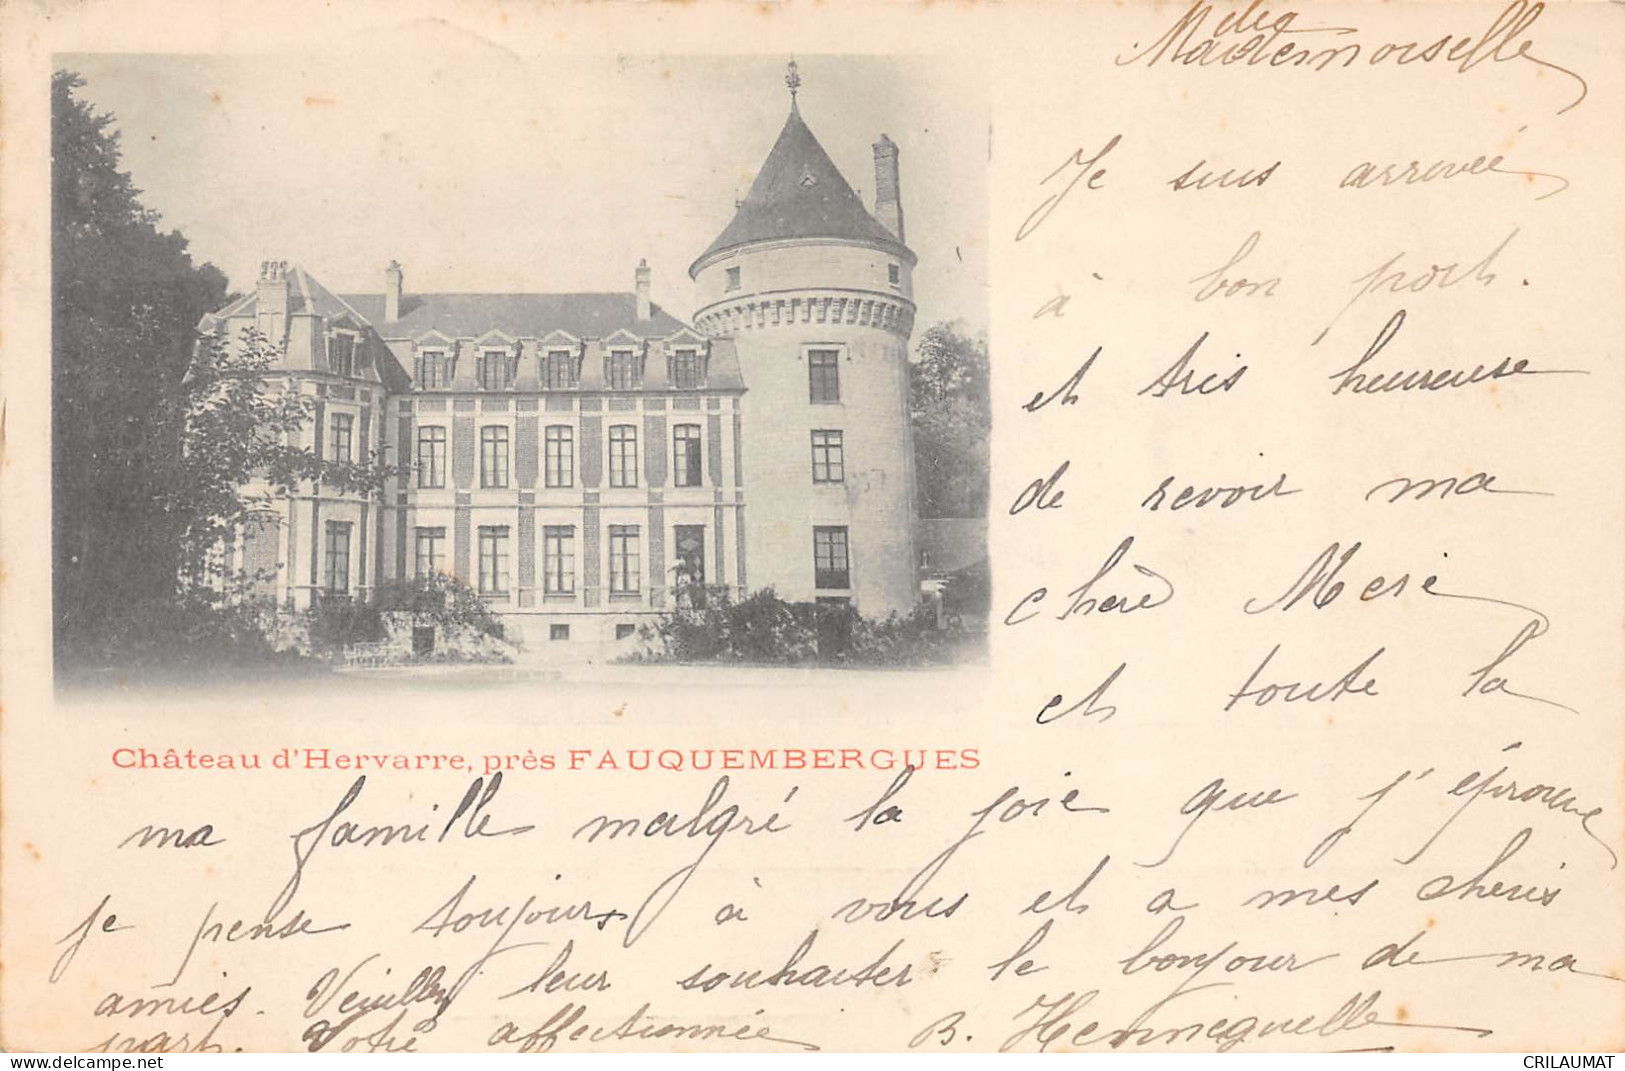 Mademoiselle
Je suis arrivée
à bon port.
et très heureuse
de revoir ma
chère Mère
et toute la
Château d'Hervarre, près FAUQUEMBERGUES
ma famille malgré la joie que j'éprouve
je pense toujours à vous et a mes cheris
amies. Veuillez leur souhaiter le bonjour de ma
part. Votre affectionnée B. Hennequelle
CRILAUMAT